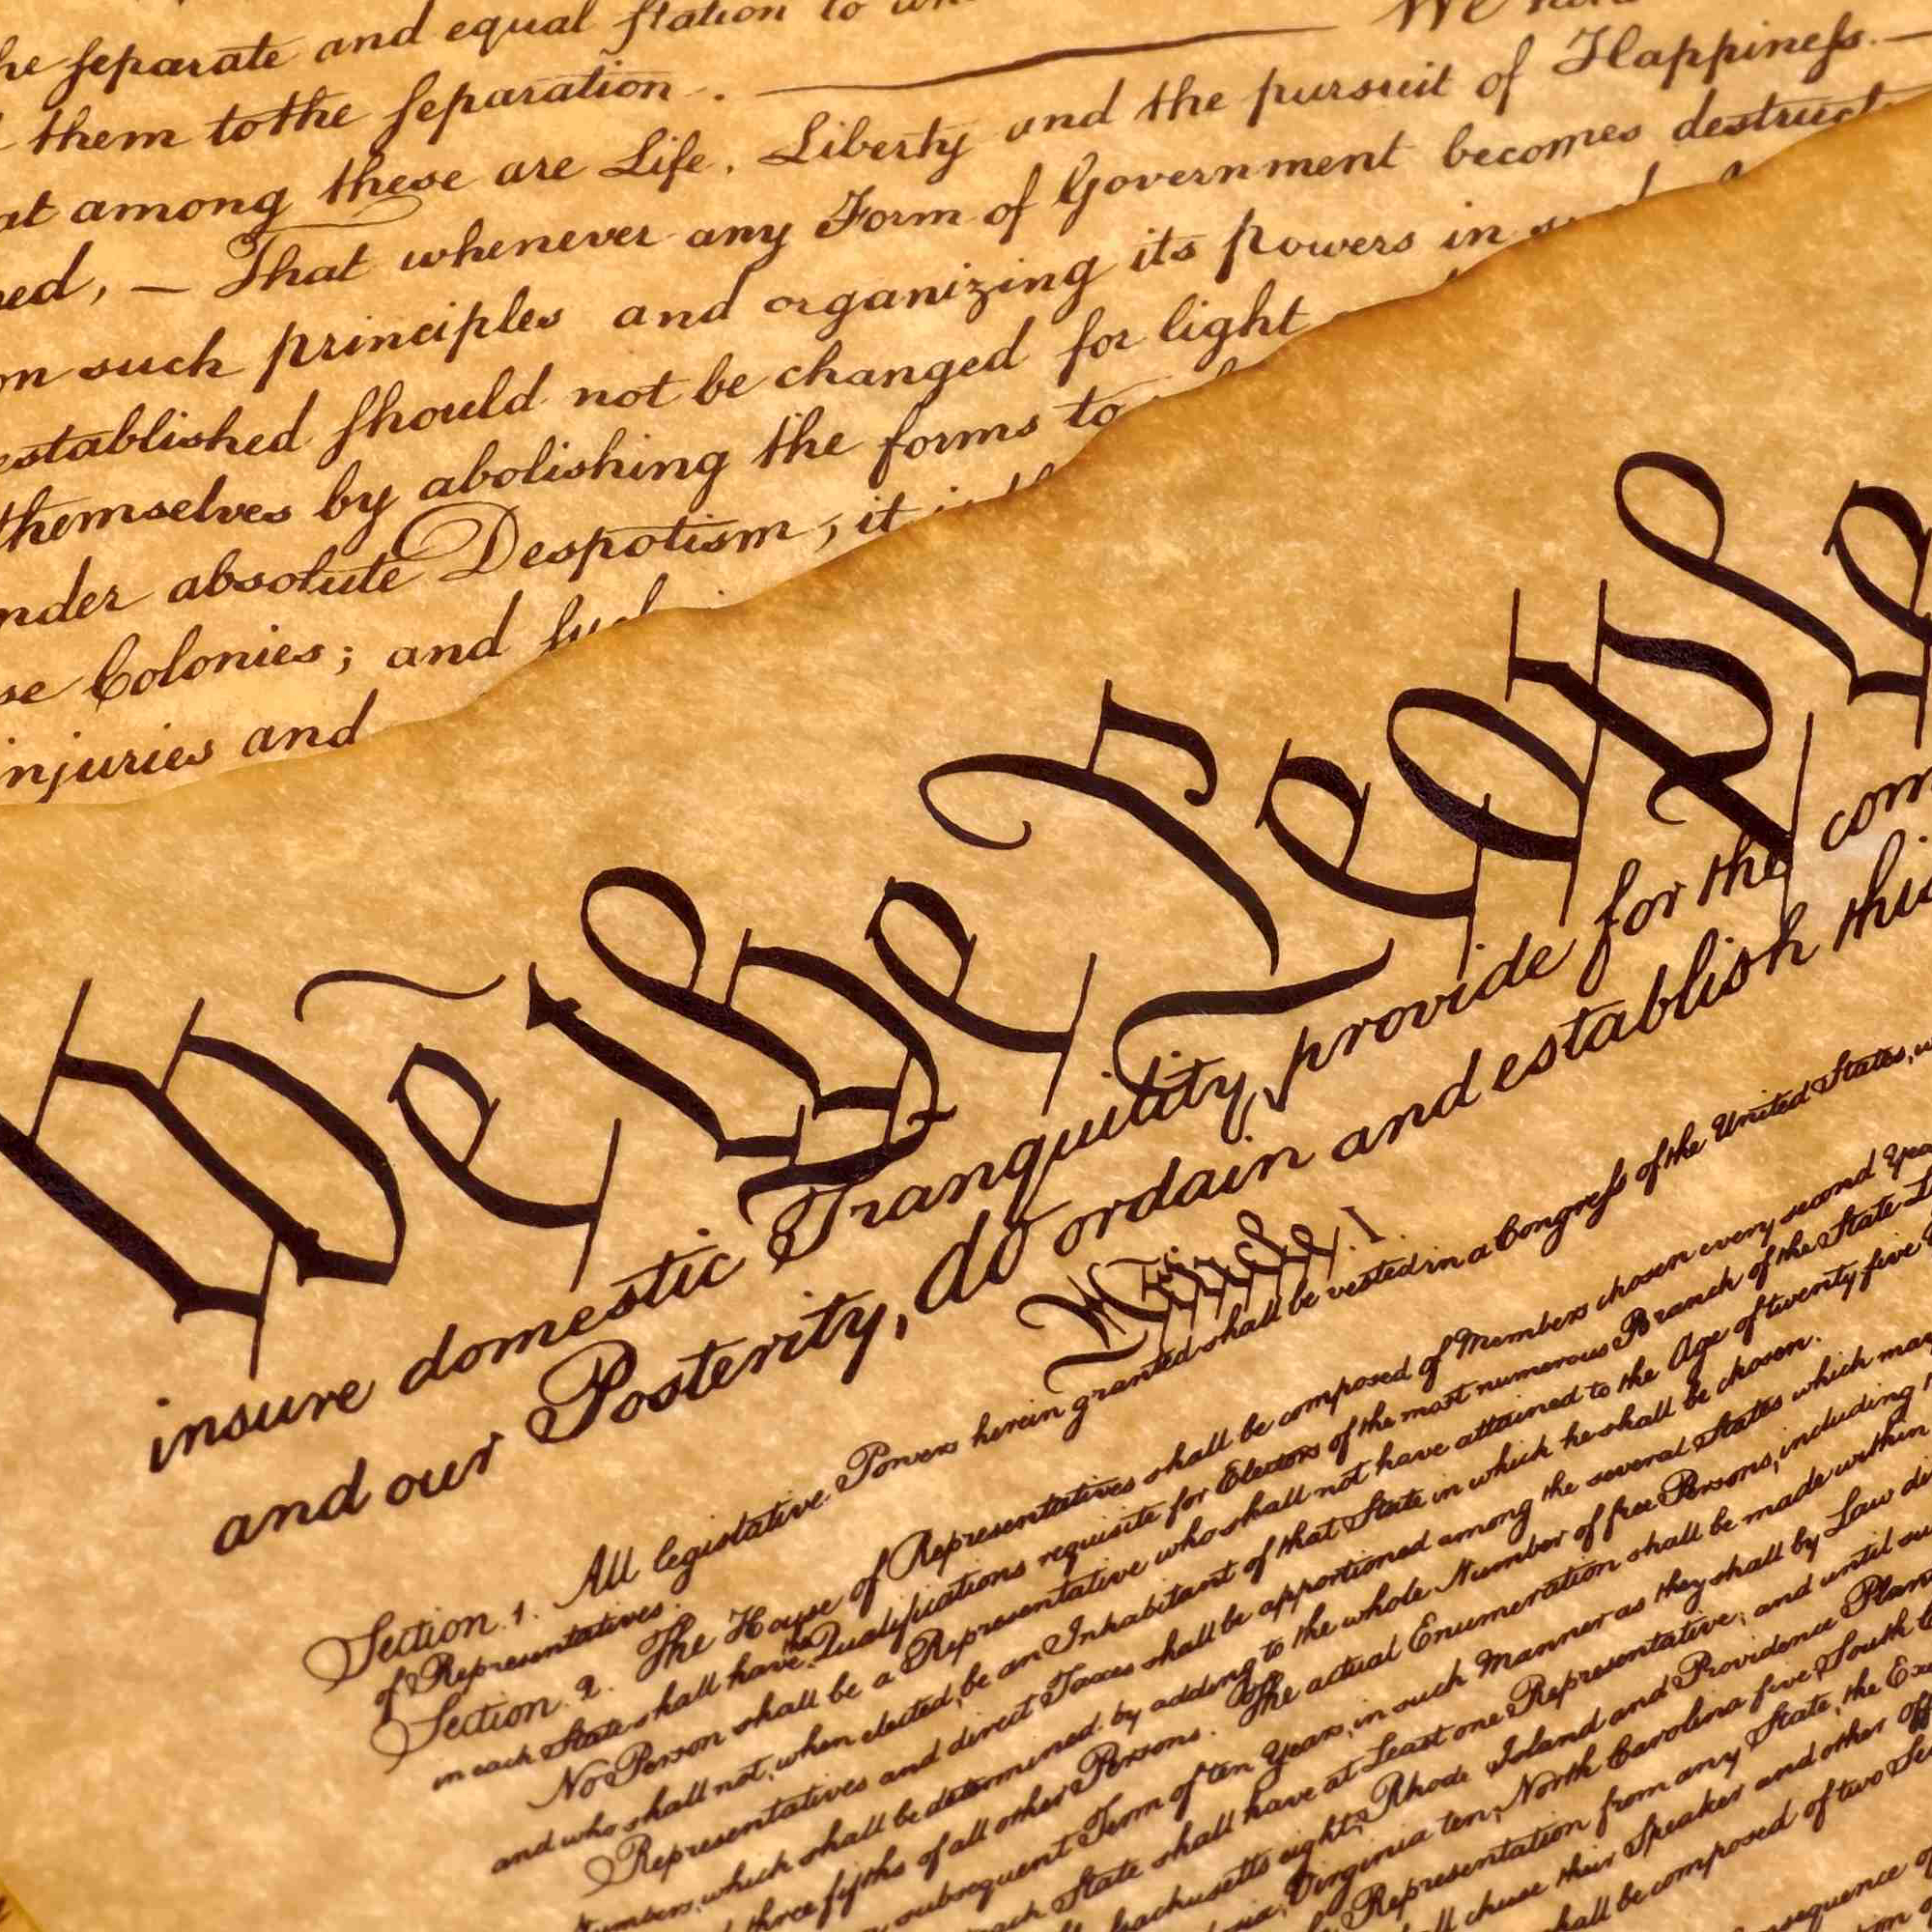 he separate and equal station to
them to the separation. We
at among these are Life, Liberty and the pursuit of Happiness.—
ned, — That whenever any Form of Government becomes destruct
on such principles and organizing its powers in
established should not be changed for light
themselves by abolishing the forms to
nder absolute Despotism, it
se Colonies; and
injuries and
We the People
insure domestic Tranquility, provide for the com
and our Posterity, do ordain and establish this
Article. I.
Section. 1. All legislative Powers herein granted shall be vested in a Congress of the United States, w
of Representatives.
Section. 2. The House of Representatives shall be composed of Members chosen every second Yea
in each State shall have the Qualifications requisite for Electors of the most numerous Branch of the State L
No Person shall be a Representative who shall not have attained to the Age of twenty five
and who shall not, when elected, be an Inhabitant of that State in which he shall be chosen.
Representatives and direct Taxes shall be apportioned among the several States which may
Numbers, which shall be determined by adding to the whole Number of free Persons, including
three fifths of all other Persons. The actual Enumeration shall be made within
subsequent Term of ten Years, in such Manner as they shall by Law di
each State shall have at Least one Representative; and until su
sachusetts eight, Rhode Island and Providence Plan
Virginia ten, North Carolina five, South
Representation from any State, the Ex
chuse their Speaker and other Off
shall be composed of two Se
sequence of